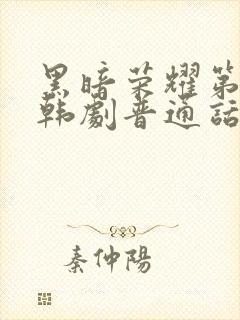 黑暗荣耀第
韩剧普通话
秦仲陽